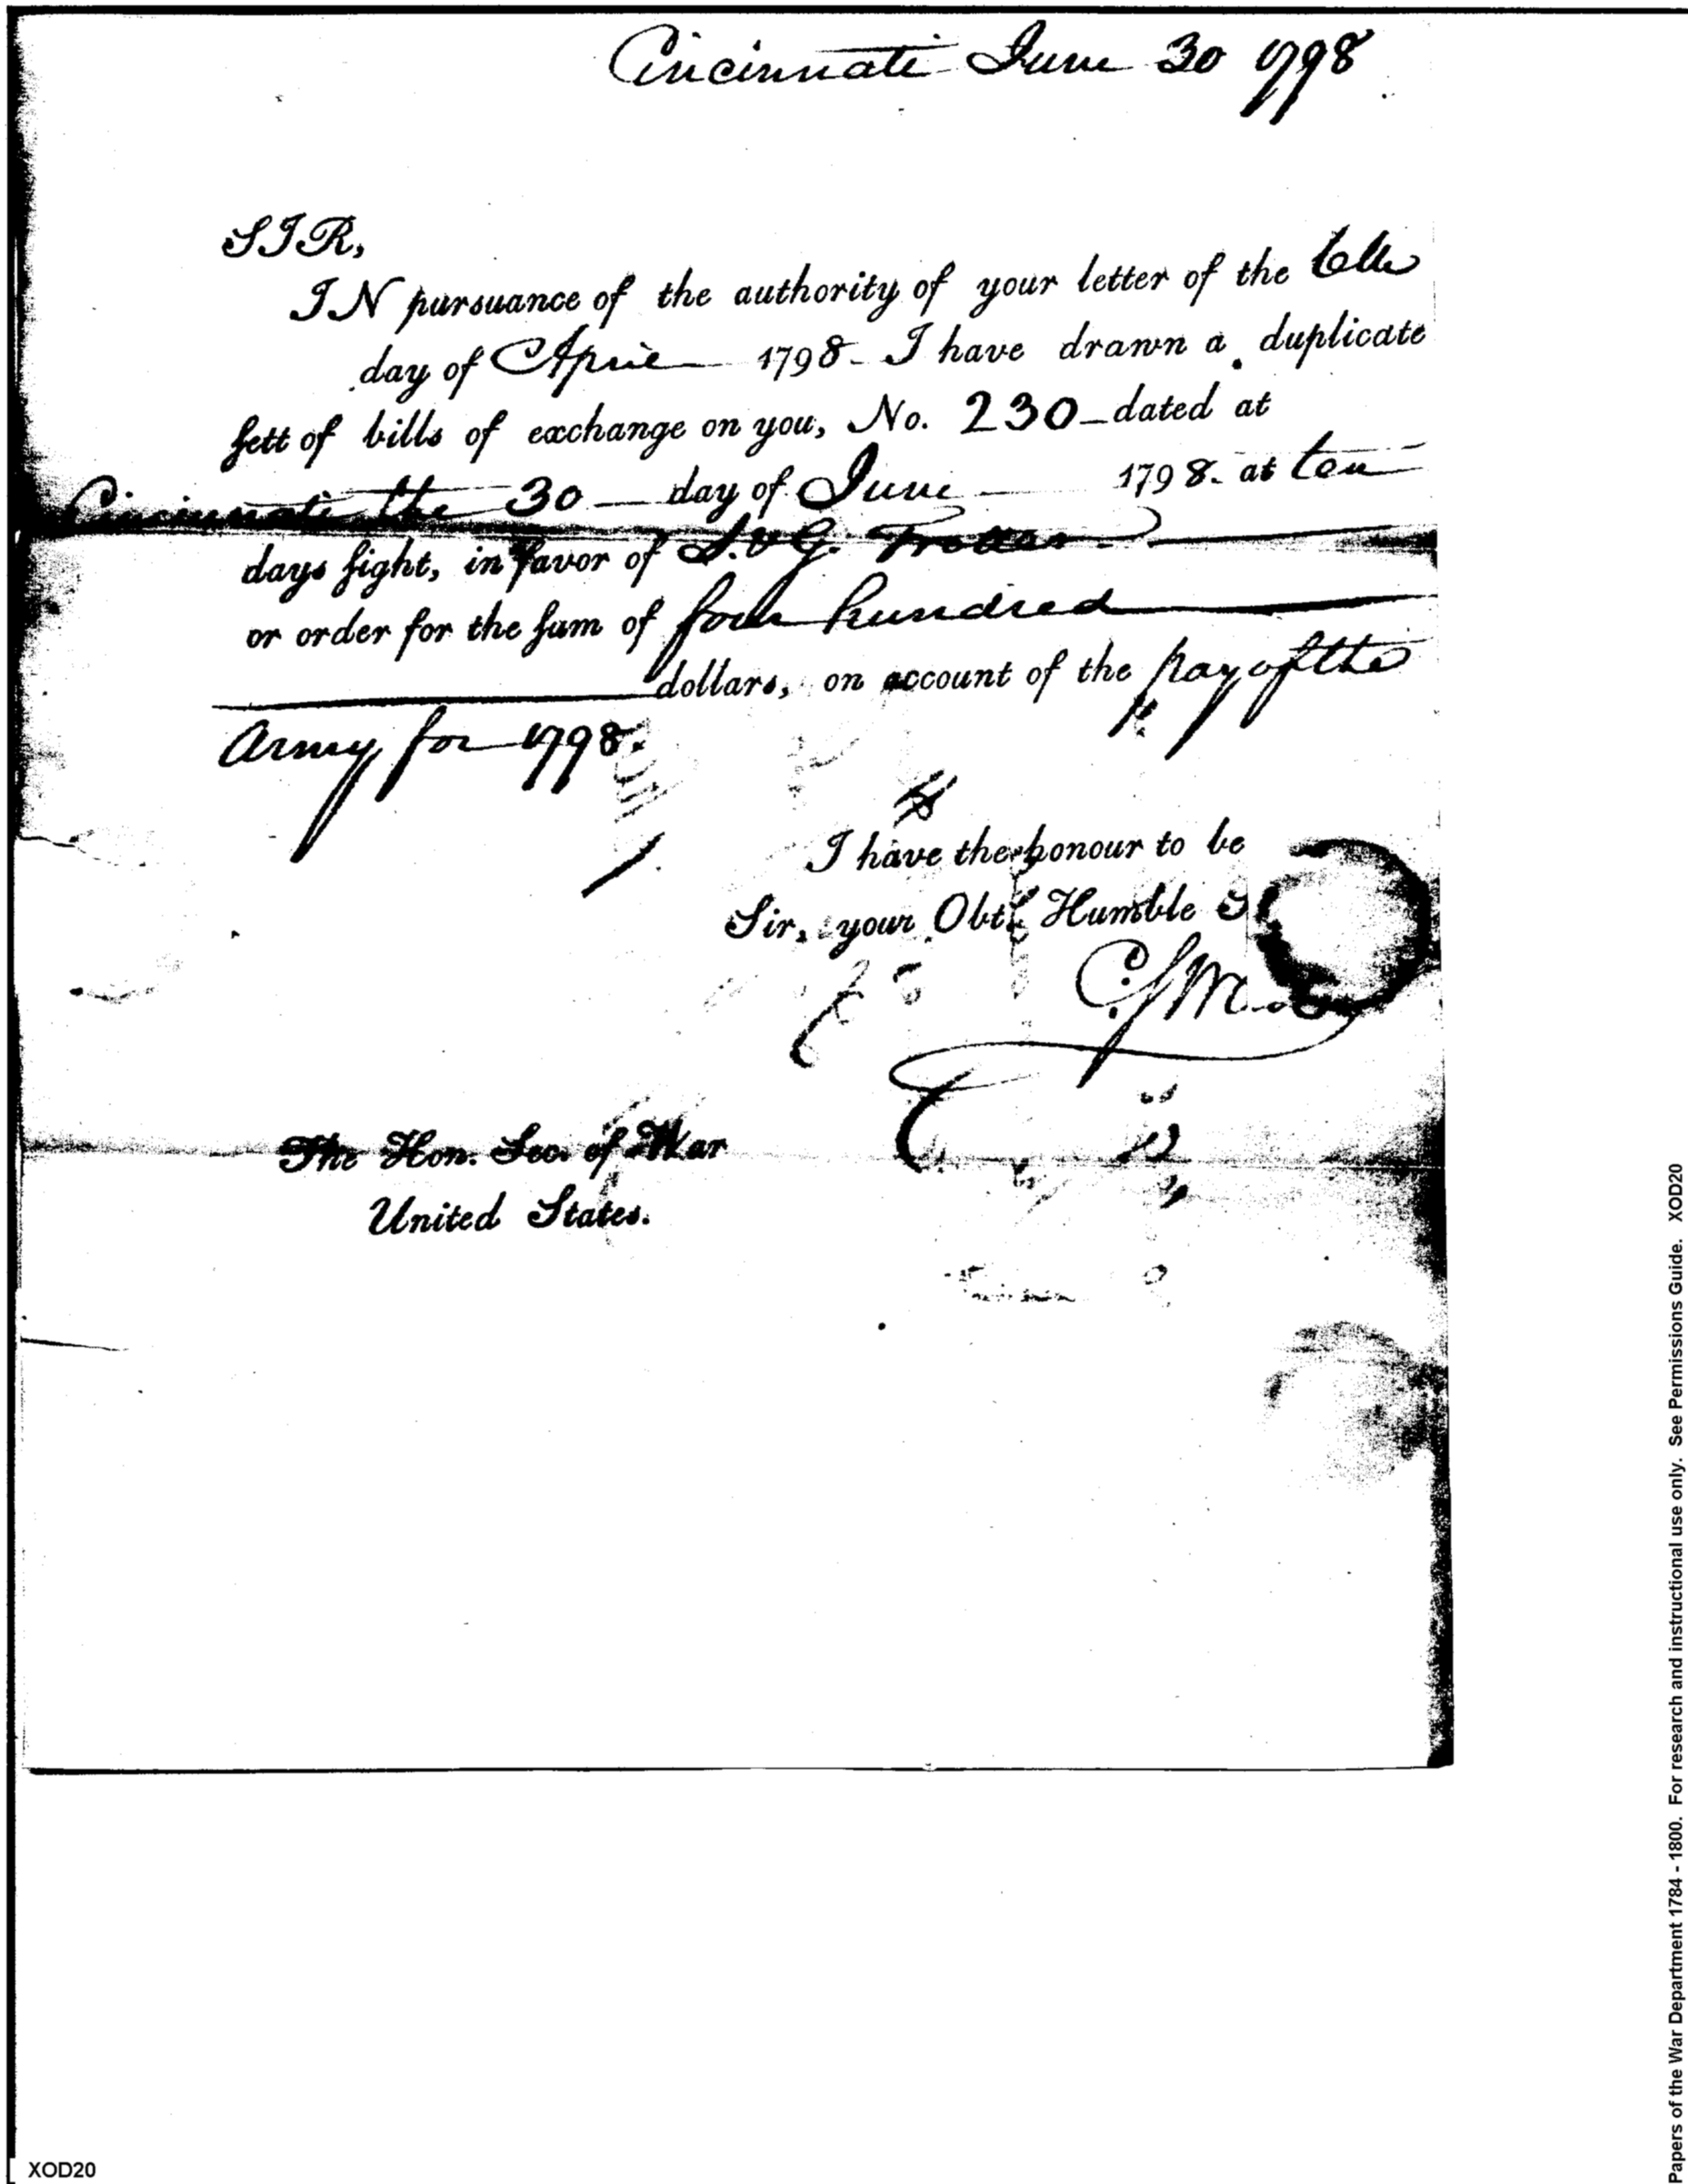 Cincinnati June 30 1798
SIR,
IN pursuance of the authority of your letter of the 6th
day of April 1798 - I have drawn a duplicate
sett of bills of exchange on you, No. 230 - dated at
Cincinnati the 30 - day of June 1798. at ten
days sight, in favor of S. & G. Trotter
or order for the sum of four hundred
dollars, on account of the pay of the
Army for 1798.
I have the honour to be
Sir, your Obt. Humble S
The Hon. Sec. of War
United States.
XOD20
Papers of the War Department 1784 - 1800. For research and instructional use only. See Permissions Guide. XOD20